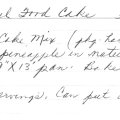 el Food Cake
Cake Mix (pkg
pineapple in
9" X 13" pan. Bake
servings. Can put